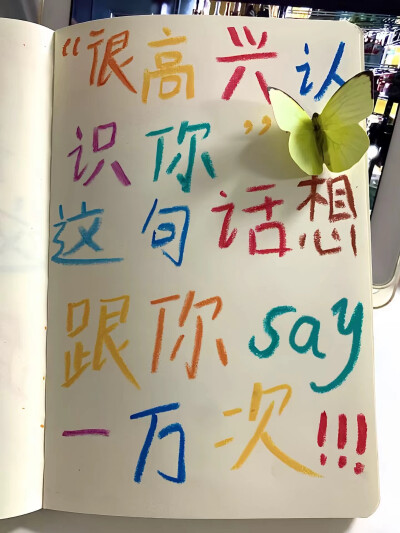 “很高兴认
识你”
这句话想
跟你say
一万次!!!